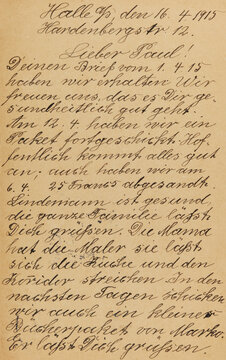 Halle a/S, den 16. 4 1915
Hardenbergstr 12.
Lieber Paul!
Deinen Brief vom 1. 4 15
haben wir erhalten Wir
freuen uns, das es Dir ge-
sundheitlich gut geht.
Am 12. 4. haben wir ein
Paket fortgeschickt. Hof-
fentlich kommt alles gut
an; auch haben wir am
6. 4. 25 Francs abgesandt.
Lindemann ist gesund,
die ganze Familie läßt
Dich grüßen. Die Mama
hat die Maler sie läßt
sich die Küche und den
Koridor streichen In den
nächsten Tagen schicken
wir auch ein kleines
von
Er läßt Dich grüßen.